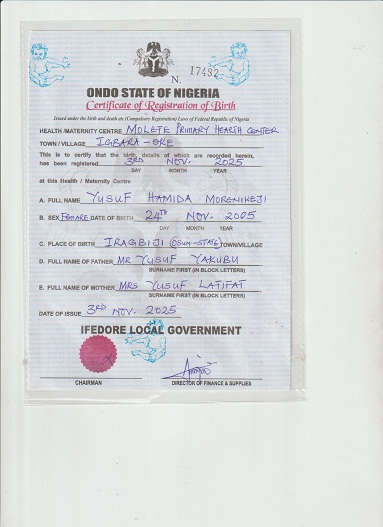 N. 17492
ONDO STATE OF NIGERIA
Certificate of Registration of Birth
Issued under the birth and death etc (Compulsory Registration) Laws of Federal Republic of Nigeria
HEALTH/MATERNITY CENTRE MOLETE PRIMARY HEALTH CENTER
TOWN / VILLAGE IGBARA-OKE
This is to certify that the birth, details of which are recorded herein,
has been registered 3RD NOV. 2025
DAY MONTH YEAR
at this Health / Maternity Centre
A. FULL NAME YUSUF HAMIDA MORENIKEJI
B. SEX FEMALE DATE OF BIRTH 24TH NOV. 2005
DAY MONTH YEAR
C. PLACE OF BIRTH IRAGBIJI (OSUN-STATE) TOWN/VILLAGE
D. FULL NAME OF FATHER MR YUSUF YAKUBU
SURNAME FIRST (IN BLOCK LETTERS)
E. FULL NAME OF MOTHER MRS YUSUF LATIFAT
SURNAME FIRST (IN BLOCK LETTERS)
DATE OF ISSUE 3RD NOV. 2025
IFEDORE LOCAL GOVERNMENT
CHAIRMAN DIRECTOR OF FINANCE & SUPPLIES